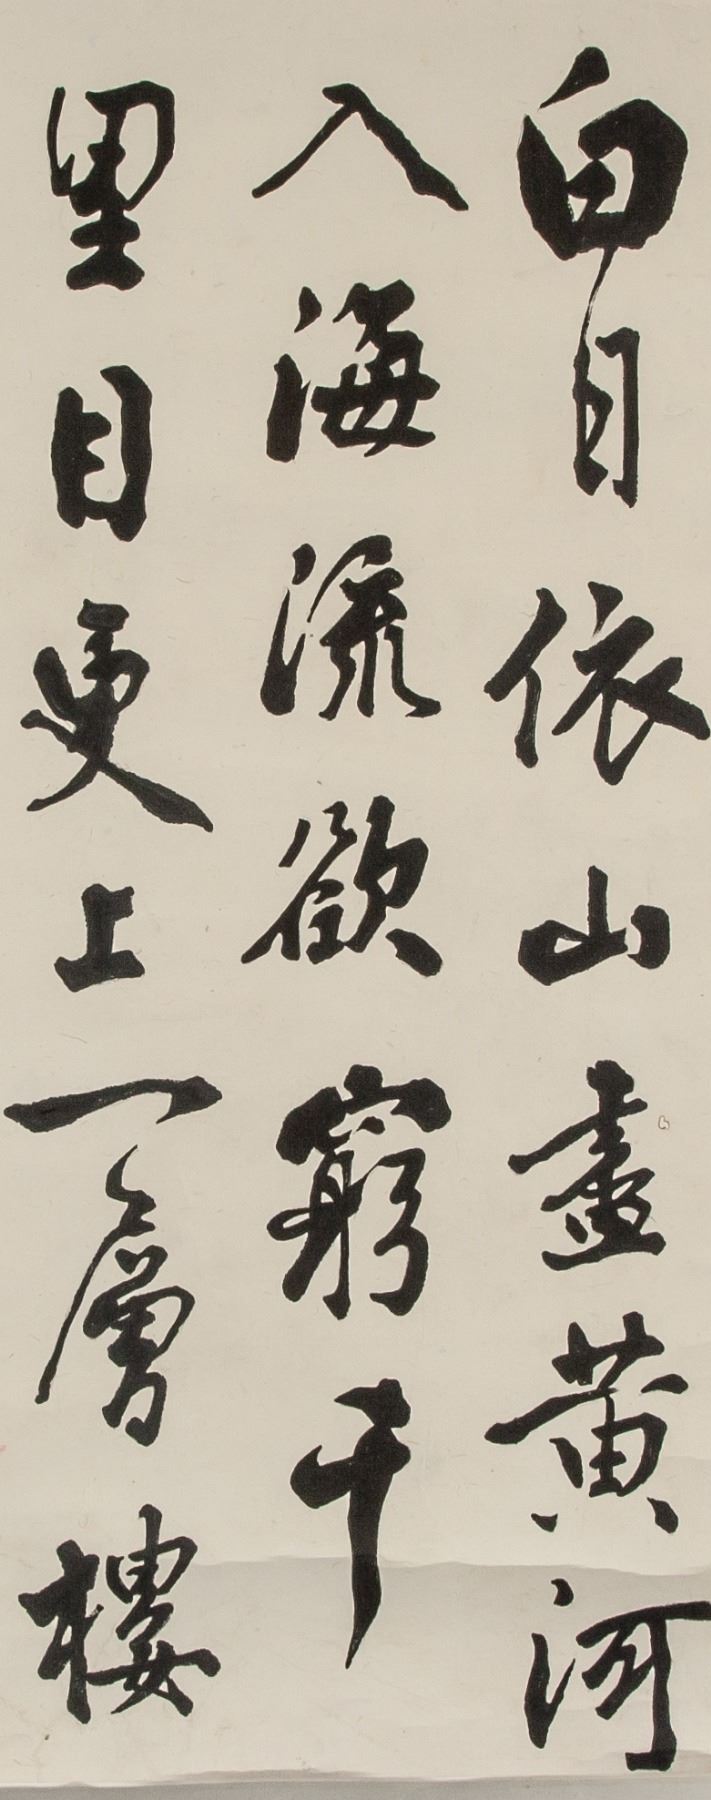 白日依山盡黃河
入海流欲窮千
里目更上一層樓